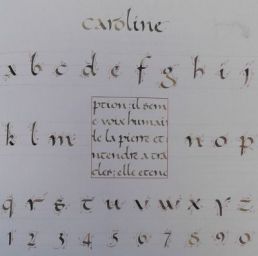 caroline
a b c d e f g h i j
k l m
ption: il sem
e voix humai
de la pierre et
ntendre a tra
cles; elle etend
n o p
q r s t u v w x y z
1 2 3 4 5 6 7 8 9 0